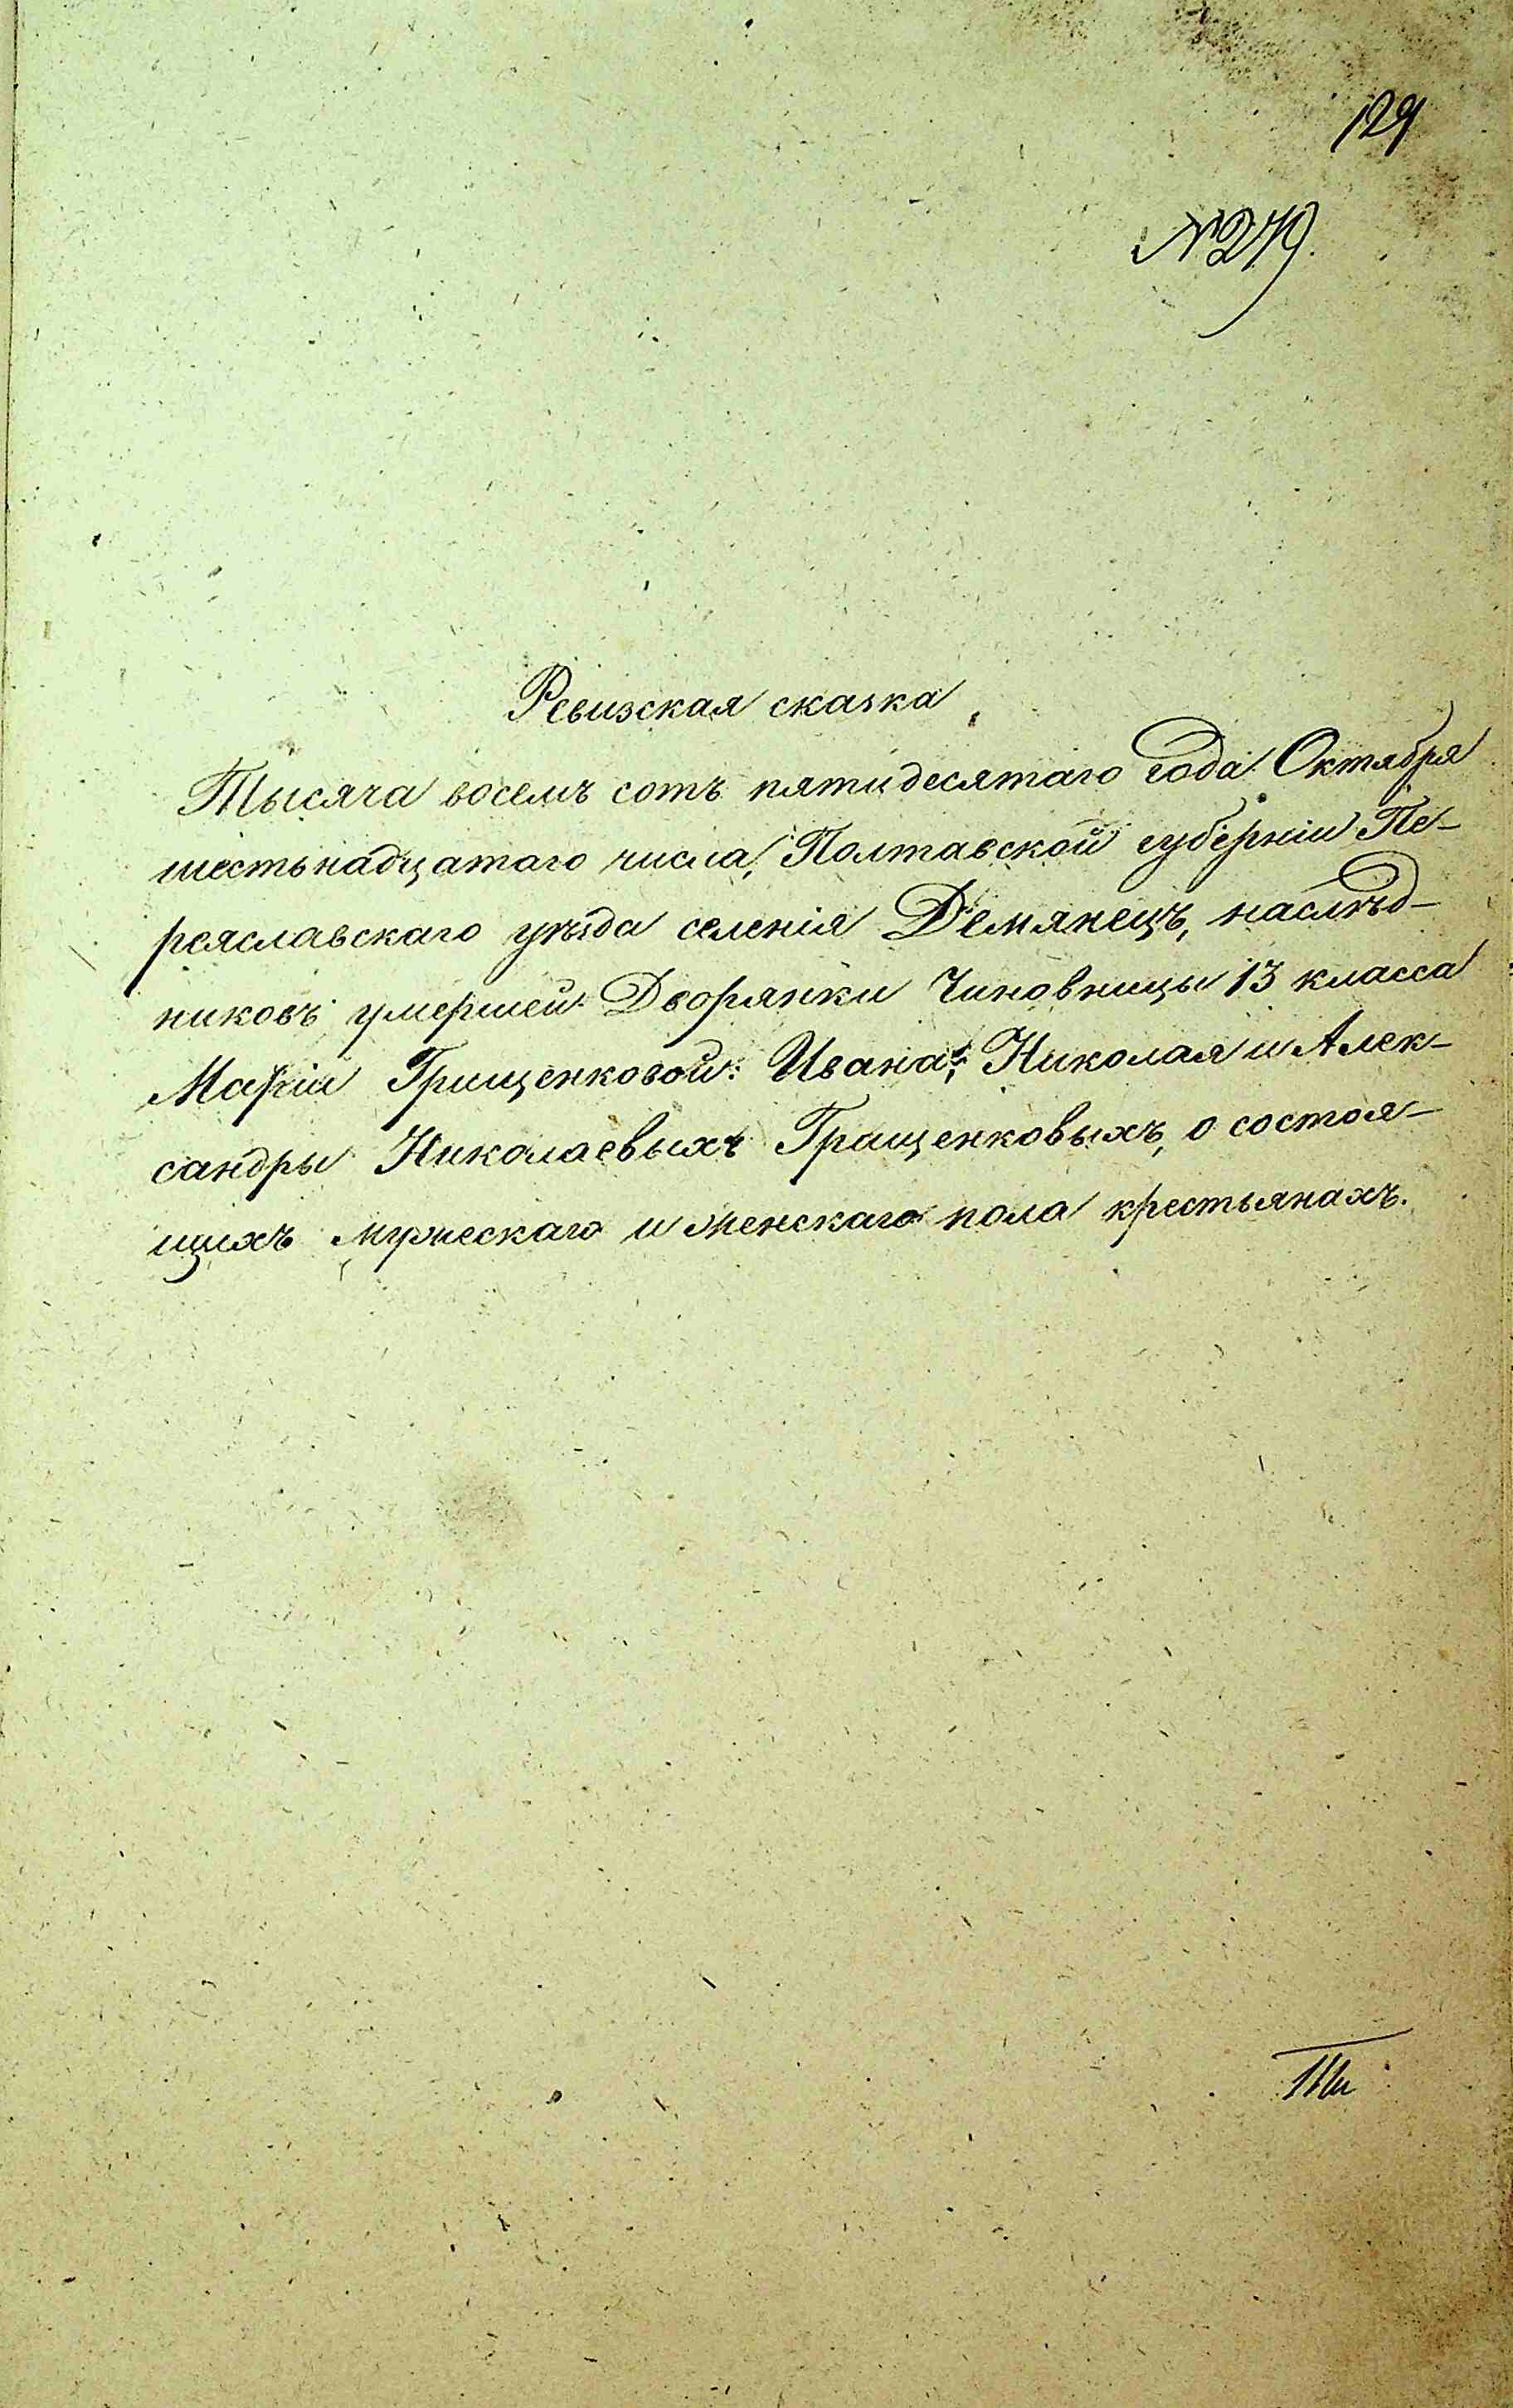 129
№279.
Ревизская сказка
Тысяча восемъ сотъ пятидесятаго года Октября
шестьнадцатаго числа, Полтавской губерніи Пе-
реяславскаго уезда селенія Демянецъ, наслѣд-
никовъ умершей Дворянки Чиновницы 13 класса
Маріи Грищенковой: Ивана, Николая и Алек-
сандры Николаевыхъ Гращенковыхъ, о состоя-
щихъ мужескаго и женскаго пола крестьянахъ.